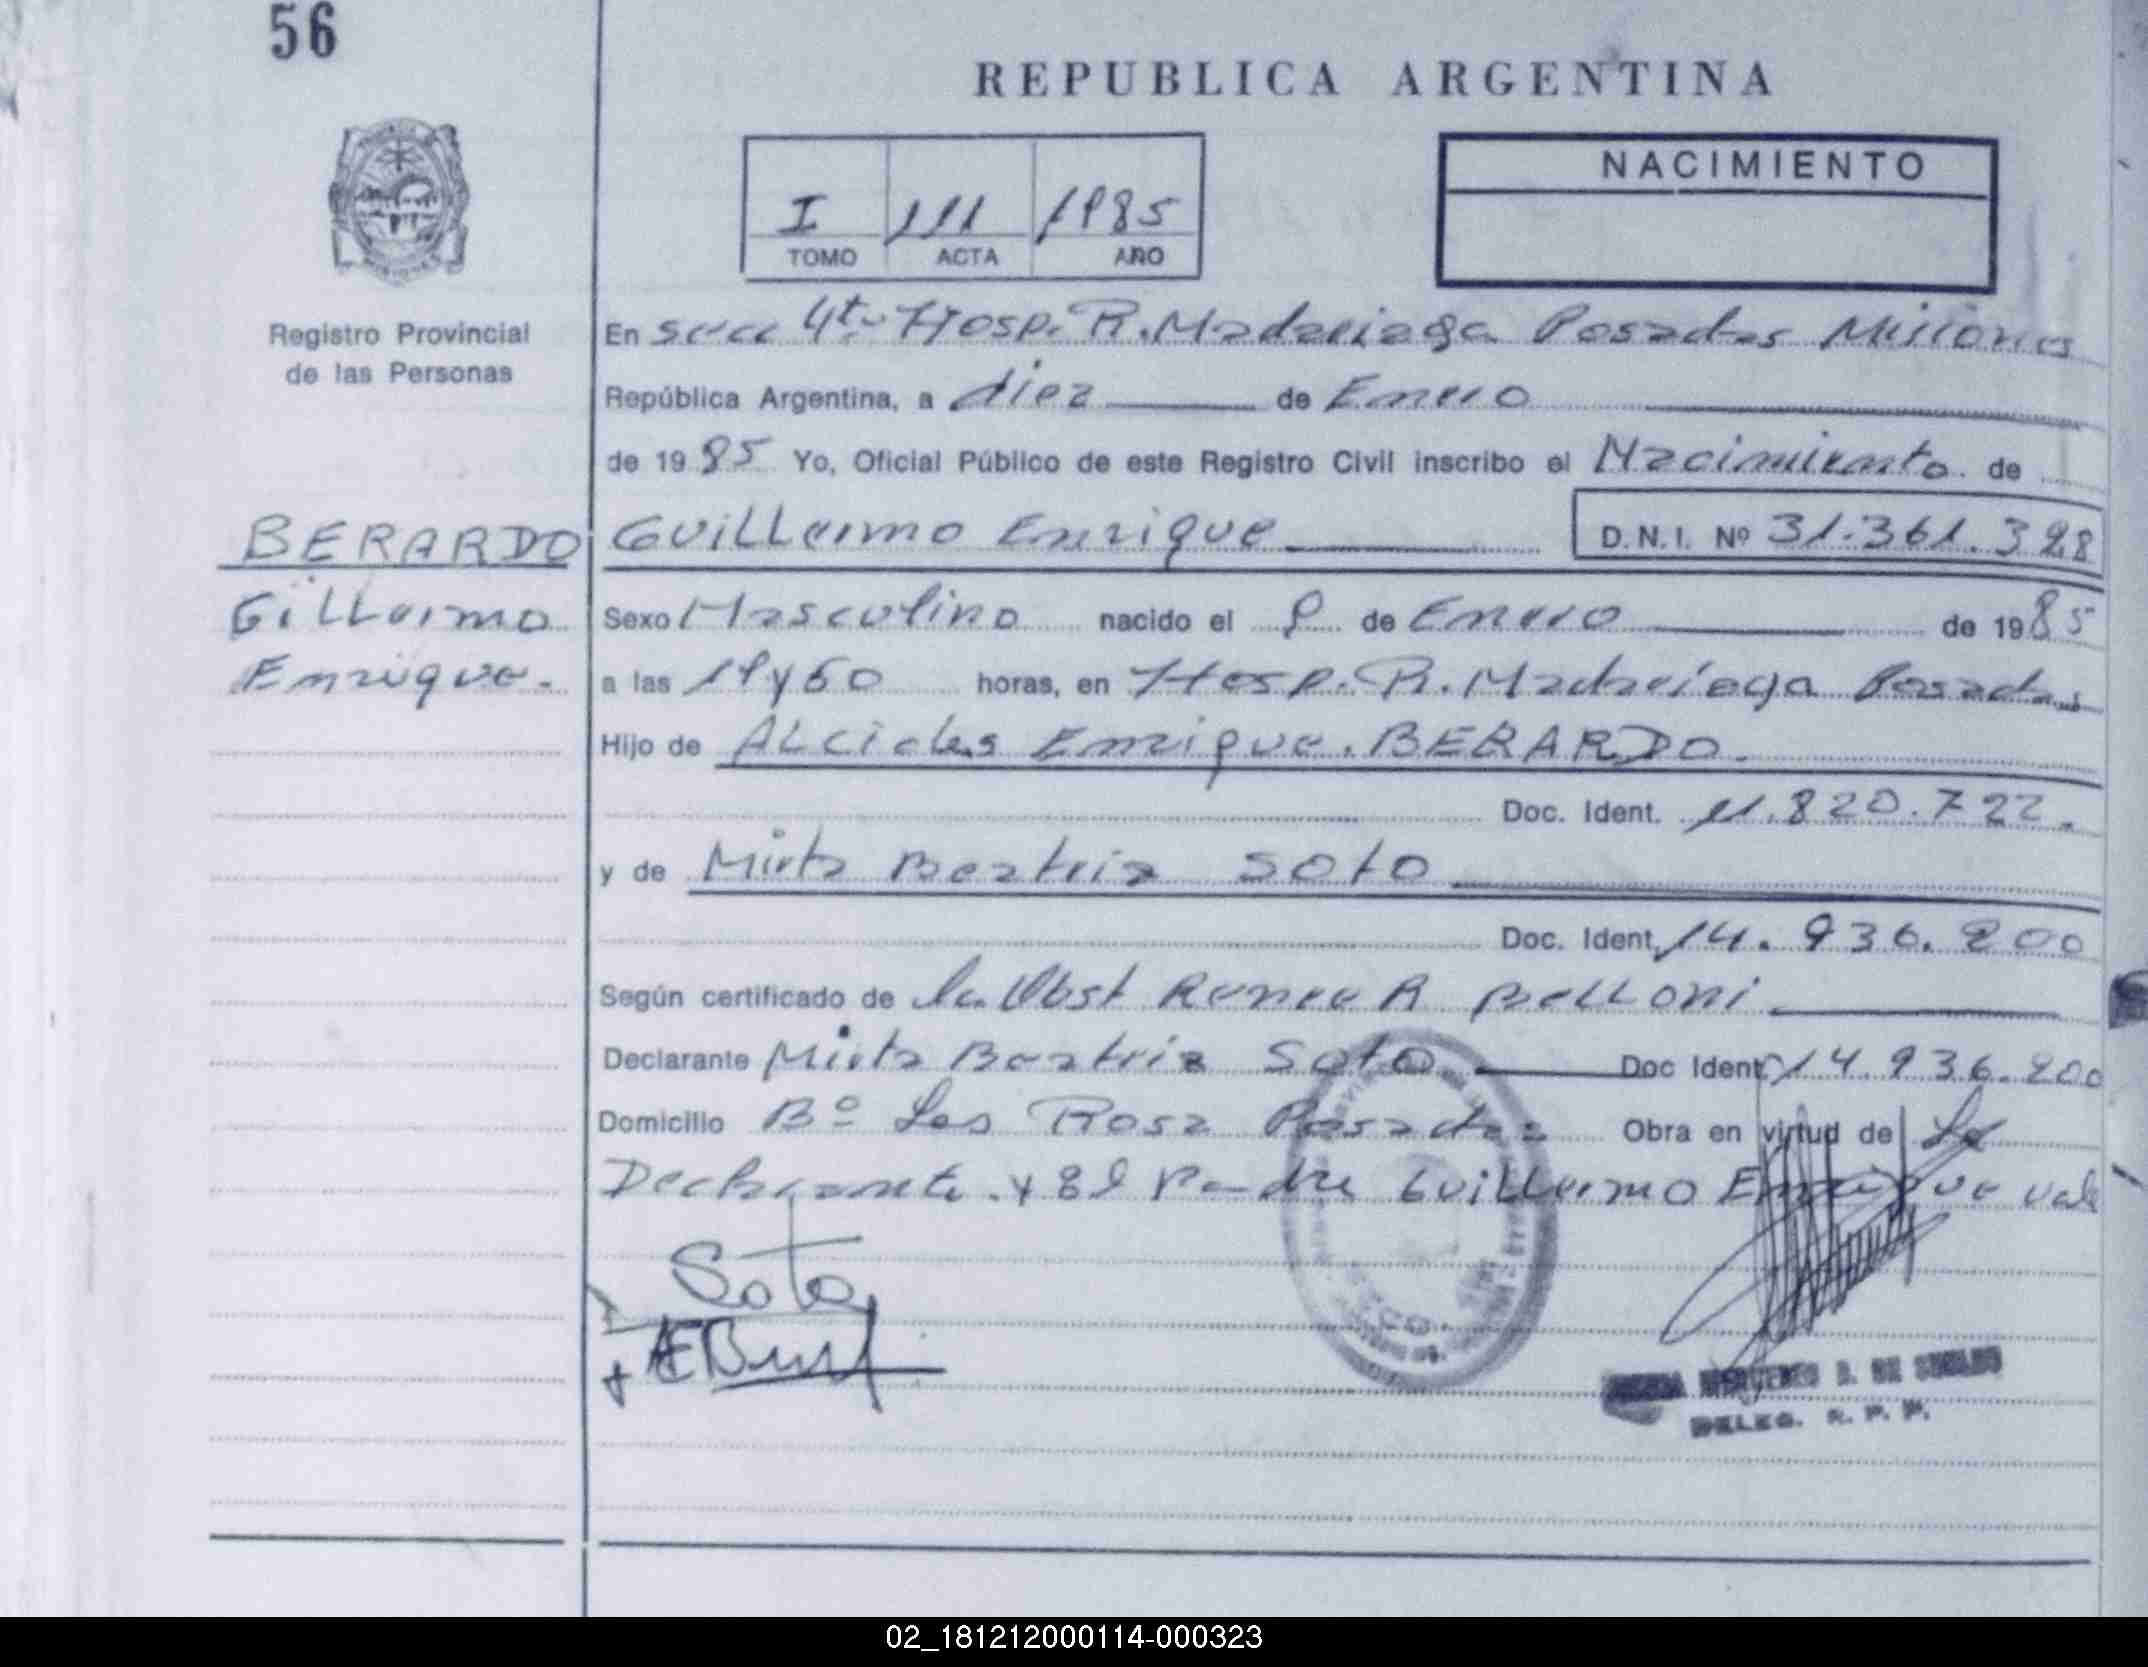 56
REPUBLICA ARGENTINA
NACIMIENTO
I 111 1985
TOMO ACTA AÑO
Registro Provincial
de las Personas
En secc 4ta Hosp. R. Madariaga Posadas Misiones
República Argentina, a diez de Enero
de 1985 Yo, Oficial Público de este Registro Civil inscribo el Nacimiento de
BERARDO Guillermo Enrique D.N.I. Nº 31.361.328
Gillermo
Enrique.
Sexo Masculino nacido el 9 de Enero de 1985
a las horas, en Hosp. R. Madariaga Posadas
Hijo de ALcides Enrique. BERARDO.
Doc. Ident. 11.820.722.
y de Mirta Beatriz SOTO
Doc. Ident. 14.936.200
Según certificado de la Obst Renee A BeLLoni
Declarante Mirta Beatriz Soto Doc Ident. 14.936.200
Domicilio Bº Las Rosa Posadas Obra en virtud de La
Declarante y El Padre Guillermo Enrique vale
Soto
DELEG. R. P. P.
02_181212000114-000323